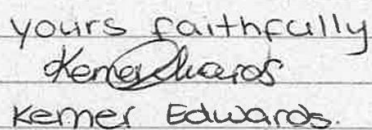 yours faithfully
Kemer Edwards
Kemer Edwards.